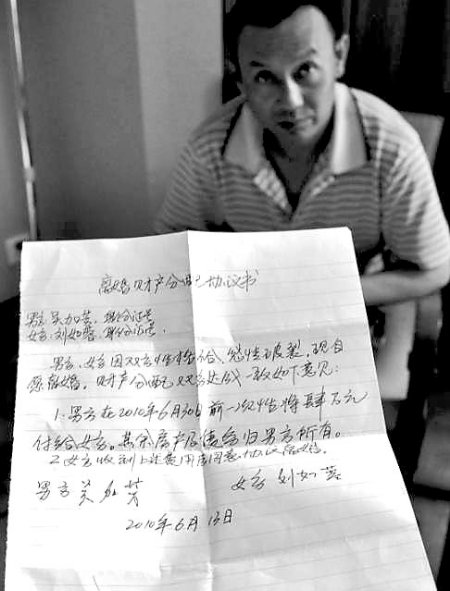 离婚财产分配协议书
男方 吴加芳 身份证号
女方 刘如蓉 身份证号
男方、女方因双方性格不合,感情破裂,现自
愿离婚。财产分配双方达成一致如下意见:
1. 男方在2010年6月30日前一次性将肆万元
付给女方。其余房产及债务归男方所有。
2. 女方收到上述费用后同意协议离婚。
男方 吴加芳 女方 刘如蓉
2010年6月13日